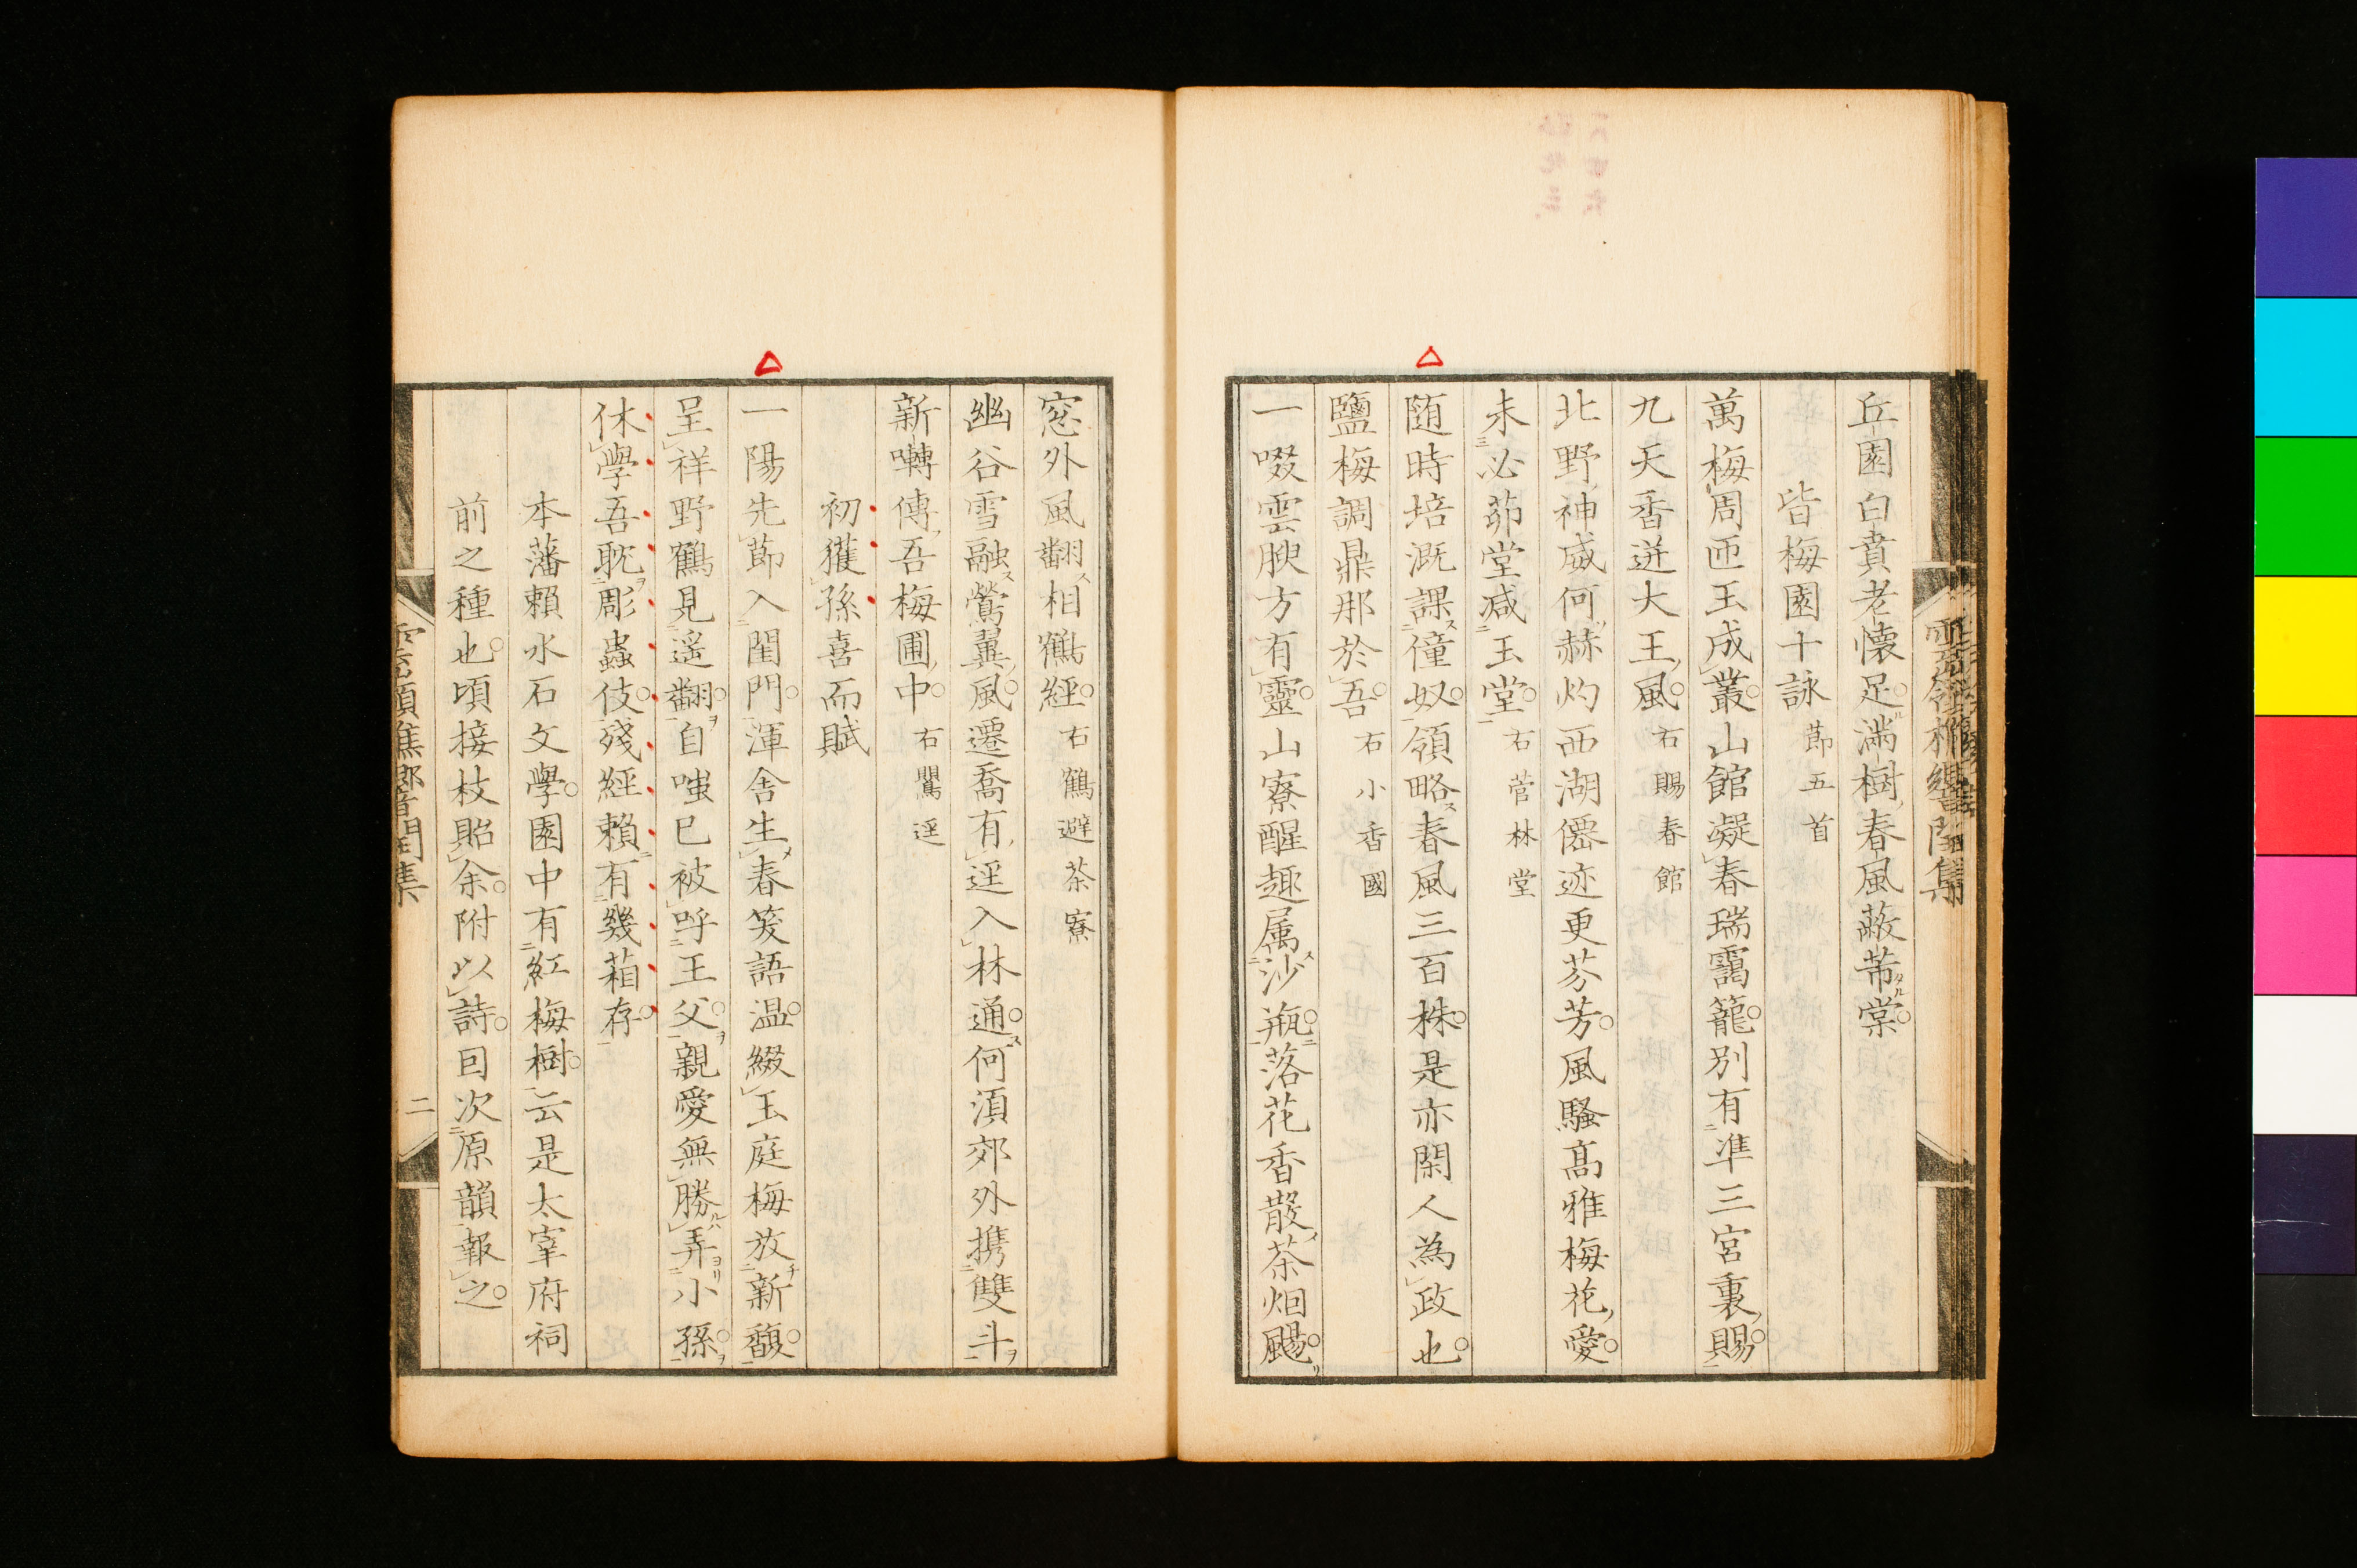 丘園白賁老懷足滿樹春風蔽芾棠
皆梅園十詠 節五首
萬梅周匝玉成叢山館凝春瑞靄籠別有準三宮裏賜
九天香迸大王風 右賜春館
北野神威何赫灼西湖僊迹更芬芳風騷高雅梅花愛
未必茆堂減玉堂 右菅林堂
随時培溉課僮奴領略春風三百株是亦閑人為政也
鹽梅調鼎那於吾 右小香國
一啜雲腴方有靈山寮醒趣属沙瓶落花香散茶烟颺
窓外風翻相鶴經 右鶴避茶寮
幽谷雪融鶯翼風遷喬有逕入林通何湏郊外携雙斗
新囀傳吾梅圃中 右鸎逕
初獲孫喜而賦
一陽先節入閨門渾舎生春笑語温綴玉庭梅放新馥
呈祥野鶴見遥翻自嗤已被呼王父親愛無勝弄小孫
休學吾耽彫蟲伎殘經賴有幾葙存
本藩賴水石文學園中有紅梅樹云是太宰府祠
前之種也頃接枝貽余附以詩囙次原韻報之
二